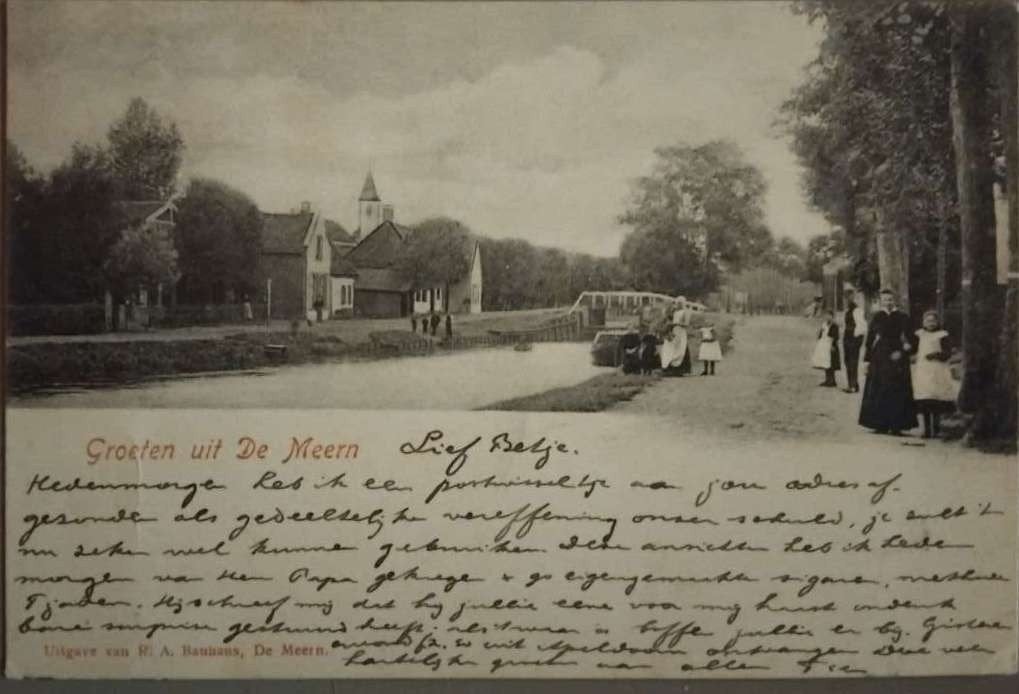 Groeten uit De Meern
Lief Betje.
Hedenmorgen heb ik een postwisseltje aan jou adres af-
gezonden als gedeeltelijke vereffening onzer schuld, je zult 't
nu zeker wel kunnen gebruiken. Deze ansichten heb ik heden
morgen van Papa gekregen & 90 eigengemaakte sigaren,
Hij schreef mij dat hij jullie eene voor mij haast ondenk
bare surprise gestuurd heeft; als 't waar is boffen jullie er bij. Gisteren
avond uit Apeldoorn ontvangen Deze
hartelijke groeten aan allen
Uitgave van R. A. Bauhaus, De Meern.